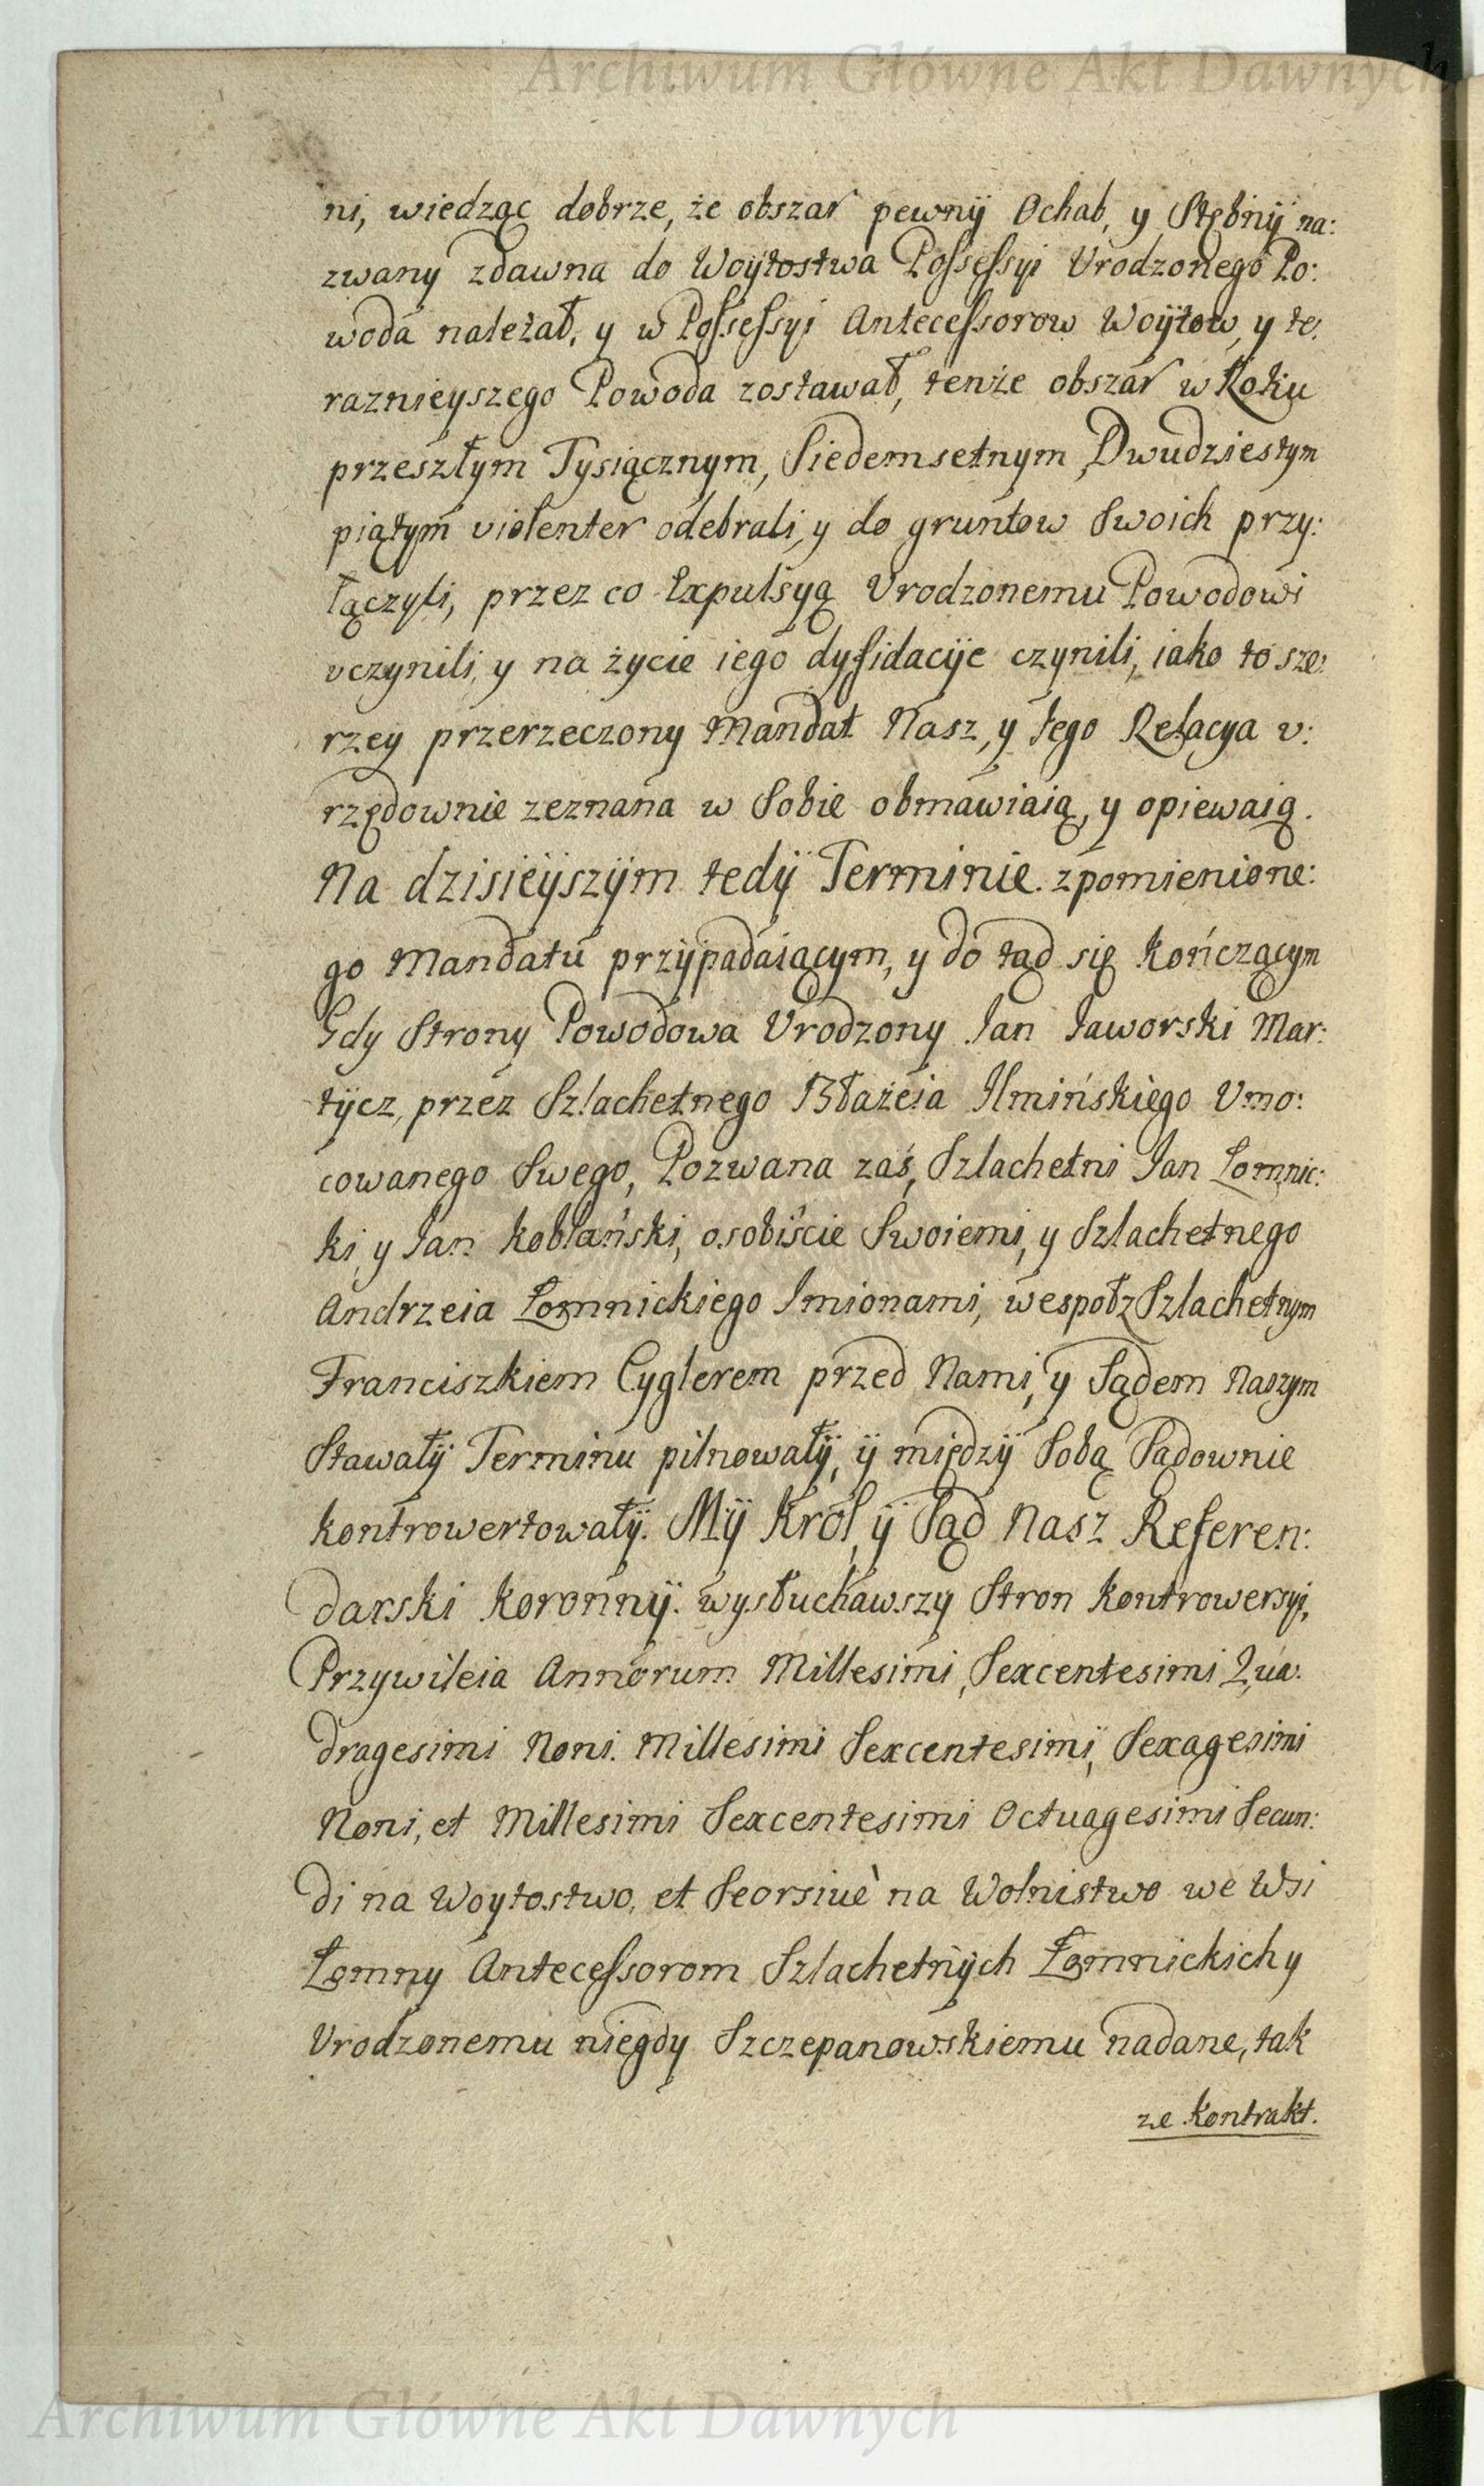 Archiwum Główne Akt Dawnych
ni, wiedząc dobrze, że obszar pewnÿ Ochab, y Stębnÿ na:
zwany zdawna do Woytostwa Possessyi Vrodzonego Po:
woda należał, y w Possessyi Antecessorow Woÿtow, y te:
raznieyszego Powoda zostawał, tenże obszar w Roku
przeszłym Tysiącznym, Siedemsetnym, Dwudziestym
piątym violenter odebrali, y do gruntow Swoich przy:
łączyli, przez co Expulsyą Vrodzonemu Powodowi
vczynili, y na życie iego dyfidacÿe czynili, iako to sze:
rzey przerzeczony Mandat Nasz, y Iego Relacya v:
rzędownie zeznana w Sobie obmawiaią, y opiewaią.
Na dzisieÿszÿm tedÿ Terminie zpomienione:
go Mandatu przÿpadaiącym, y do tąd się kończącym
Gdy Strony Powodowa Vrodzony Ian Iaworski Mar:
tÿcz, przez Szlachetnego Błażeia Ilmińskiego Vmo:
cowanego Swego, Pozwana zaś, Szlachetni Ian Łomnic:
ki, y Ian Koblański, osobiście Swoiemi, y Szlachetnego
Andrzeia Łomnickiego Imionami, wespołz Szlachetnym
Franciszkiem Cyglerem przed Nami, y Sądem Naszym
Stawałÿ Terminu pilnowałÿ, ÿ międzÿ Sobą Sądownie
kontrowertowałÿ. Mÿ Krol, ÿ Sąd Nasz Referen:
darski Koronnÿ. wysłuchawszy Stron Kontrowersyi,
Przywileia Annorum Millesimi, Sexcentesimi Qua:
dragesimi Noni. Millesimi Sexcentesimi, Sexagesimi
Noni, et Millesimi Sexcentesimi Octuagesimi Secun:
di na Woytostwo, et Seorsiuè na Wolnistwo we Wsi
Łomny Antecessorom Szlachetnÿch Łomnickich y
Vrodzonemu niegdy Szczepanowskiemu nadane, tak
ze Kontrakt.
Archiwum Główne Akt Dawnych